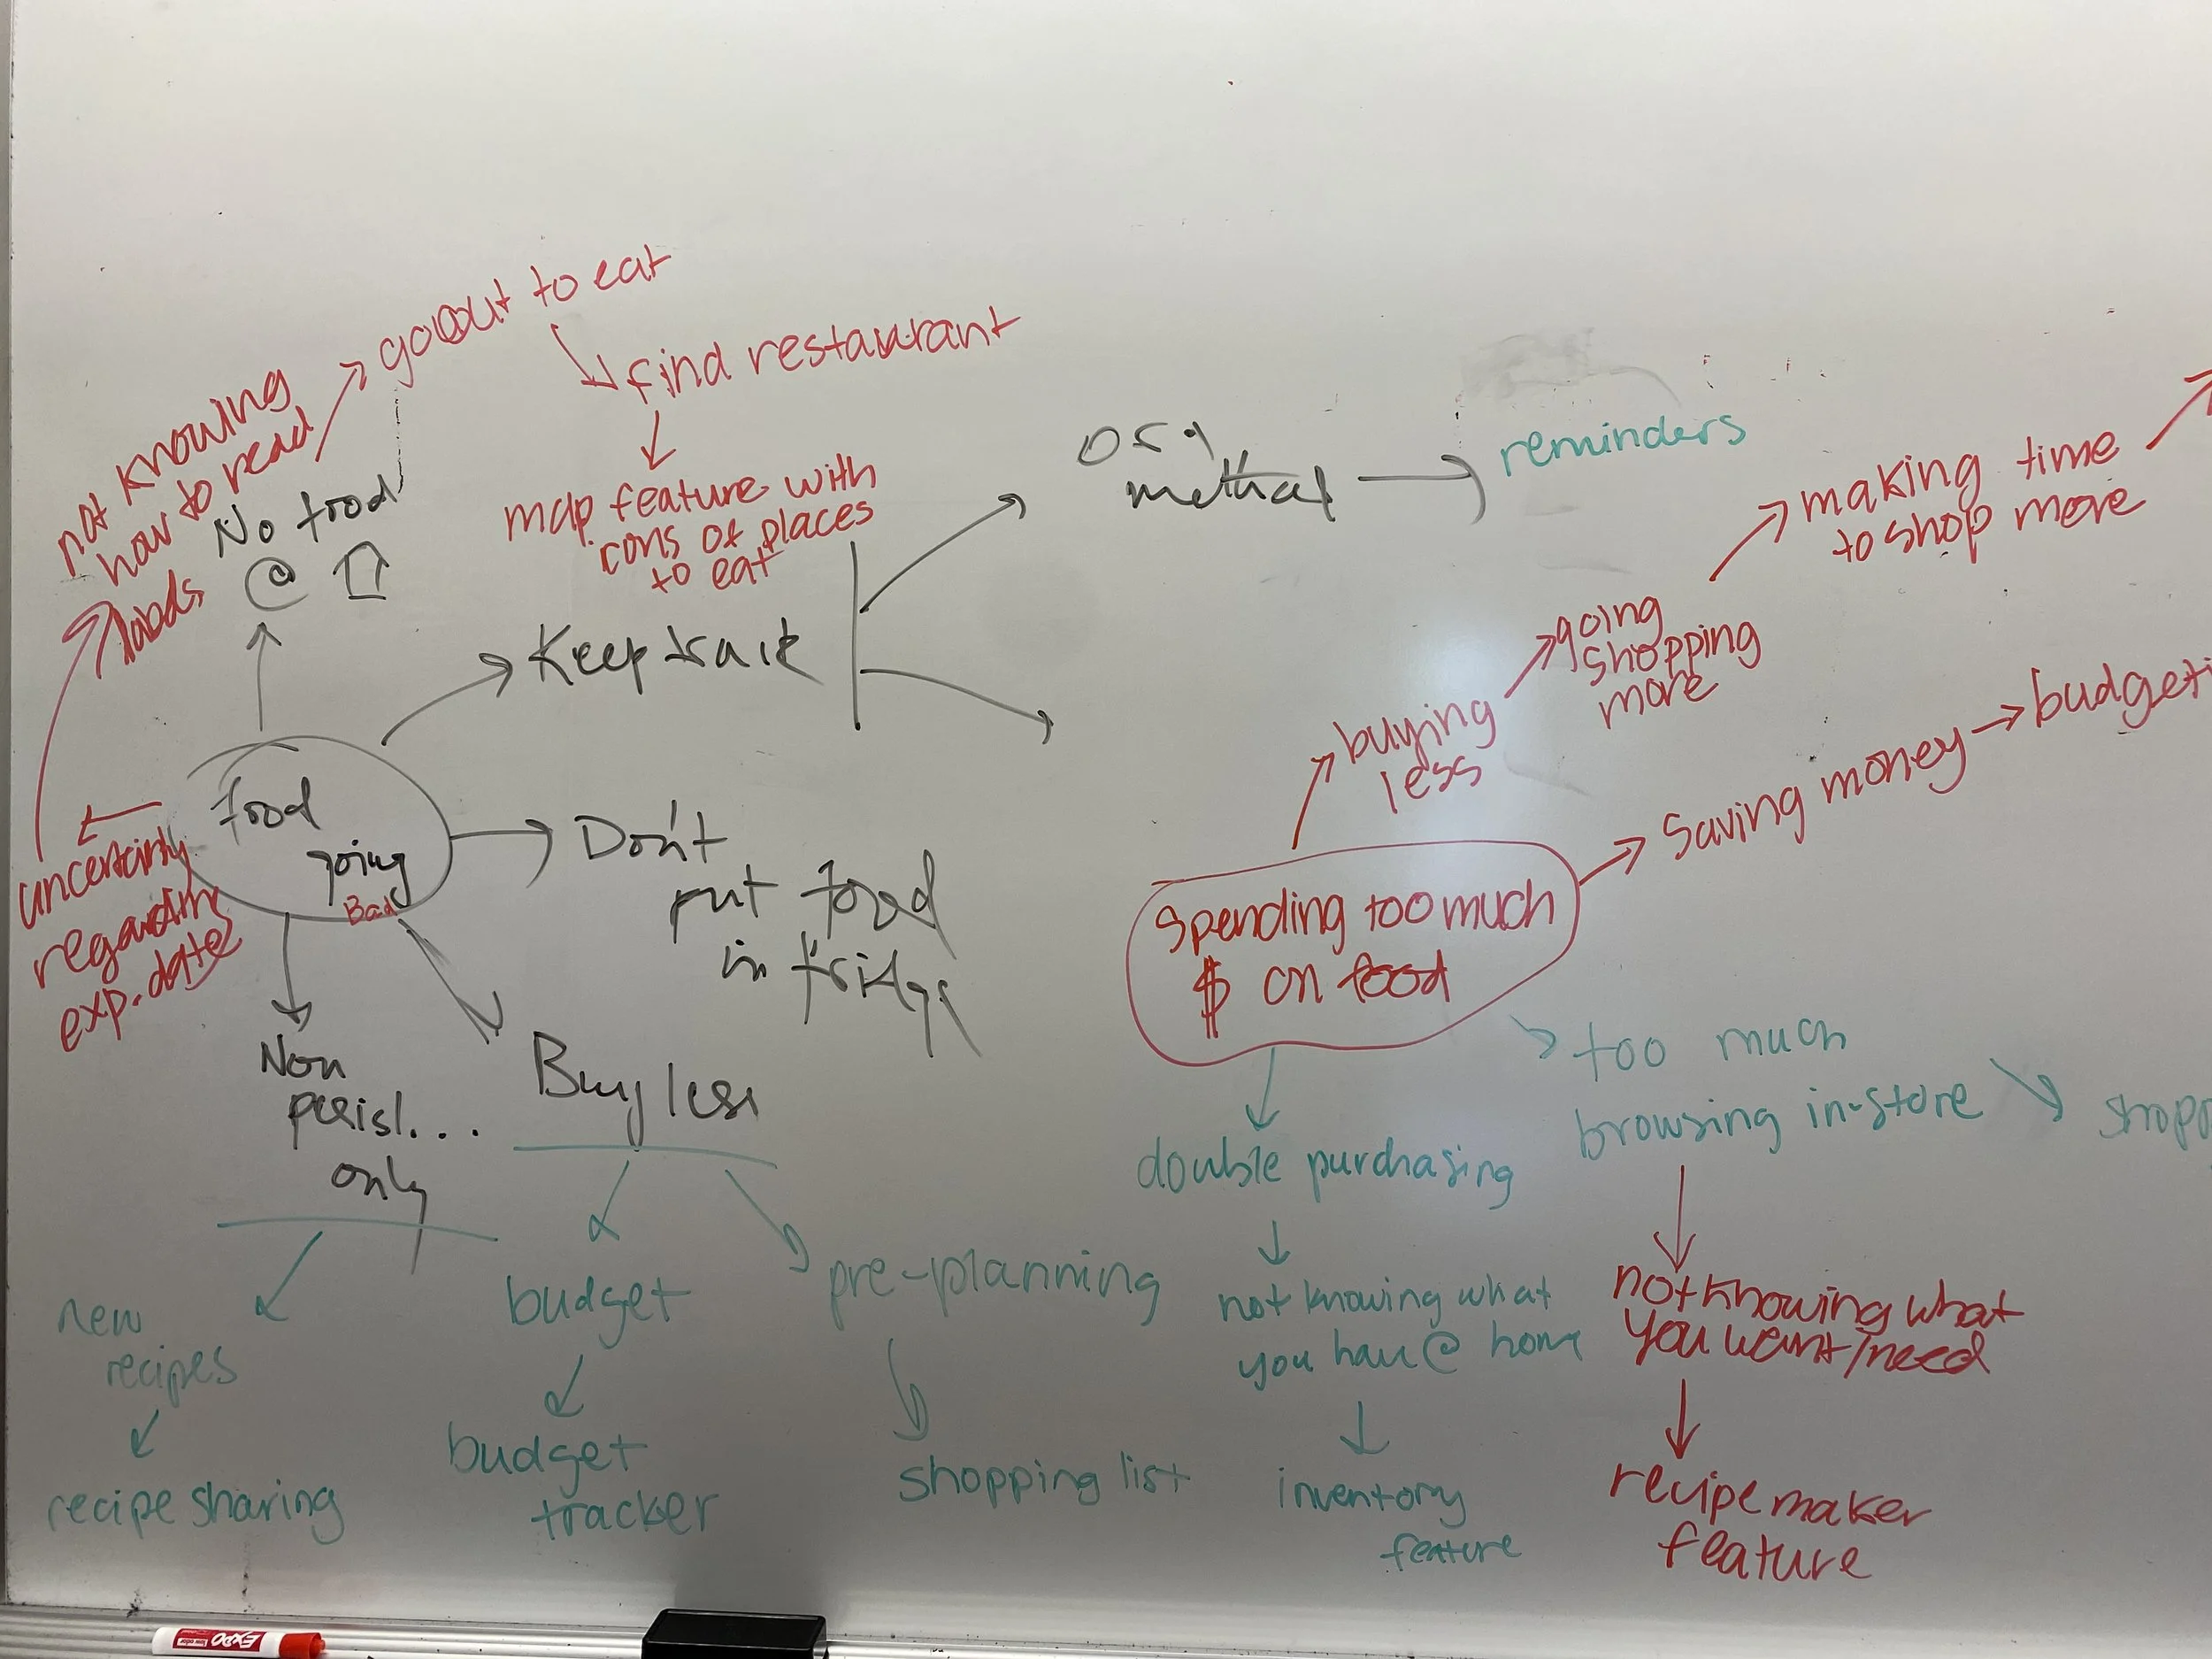 go out to eat
find restaurant
map feature with
icons of places
to eat
not knowing
how to read
labels
No food
@
org
method
reminders
making time
to shop more
Keep track
going
shopping
more
buying
less
budgeti
Saving money
food
going
Bad
uncertainty
regarding
exp. date
Don't
put food
in fridge
Spending too much
$ on food
Non
perish...
only
Buy less
too much
browsing in-store
shopp
double purchasing
new
recipes
recipe sharing
budget
budget
tracker
pre-planning
shopping list
not knowing what
you have @ home
inventory
feature
not knowing what
you want/need
recipe maker
feature
EXPO